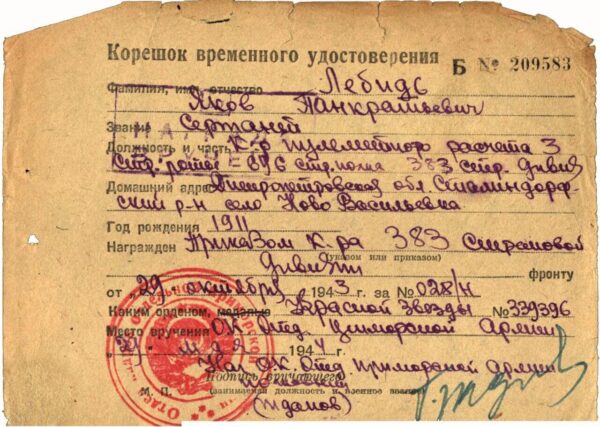 Корешок временного удостоверения Б № 209583
Фамилия, имя, отчество Лебидь
Яков Панкратьевич
Звание Сержант
Должность и часть К-р пулеметног расчета 3
Стр. роты 696 стр. полка 383 стр. дивиз
Домашний адрес Днепропетровская обл. Сталиндорф-
ский р-н село Ново Васильевка
Год рождения 1911
Награжден Приказом К-ра 383 Стрелковой
(указом или приказом)
Дивизии фронту
от „29" октября 1943 г. за № 028/н
Каким орденом, медалью Красной Звезды № 339396
Место вручения ОК Отд Приморской Армии
1944 г.
Нач ОК Отд Приморской Армии
Подпись вручающего
М. П. (занимаемая должность и военное звание)
(Жданов)